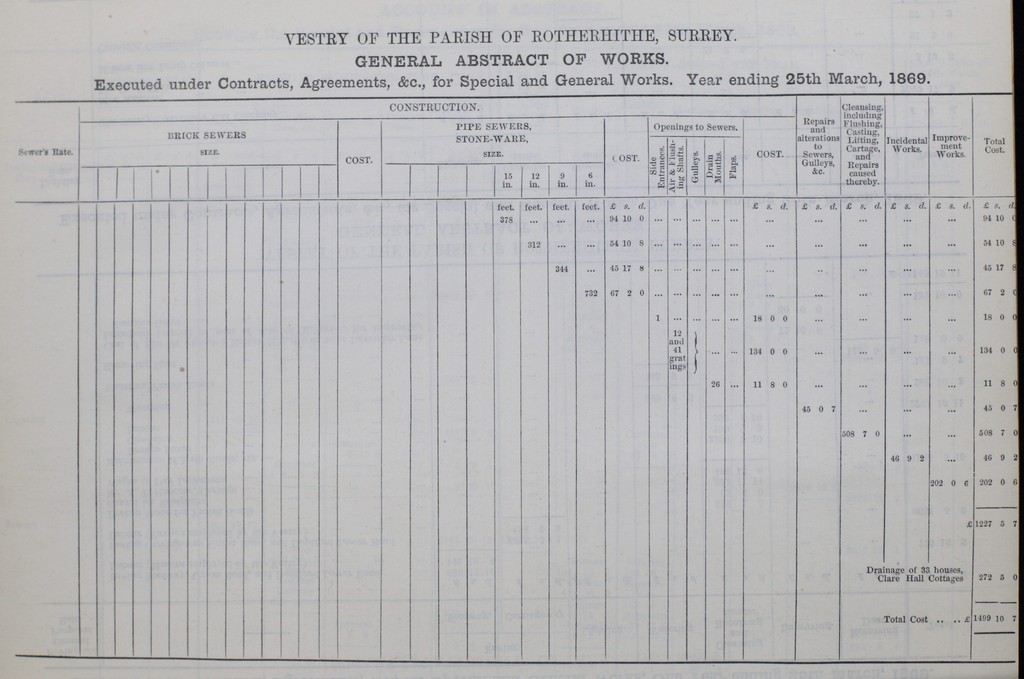 VESTRY OF THE PARISH OF ROTHERHITHE, SURREY.
GENERAL ABSTRACT OF WORKS.
Executed under Contracts, Agreements, &c., for Special and General Works. Year ending 25th March, 1869.
Sewer's Rate.
CONSTRUCTION.
BRICK SEWERS
SIZE.
COST.
PIPE SEWERS,
STONE-WARE,
SIZE.
15 in. 12 in. 9 in. 6 in.
COST.
Openings to Sewers.
Side Entrances.
Air & Flushing Shafts.
Gulleys.
Drain Mouths.
Flaps.
COST.
Repairs
and
alterations
to
Sewers,
Gulleys,
&c.
Cleansing,
including
Flushing,
Casting,
Lifting,
Cartage,
and
Repairs
caused
thereby.
Incidental
Works.
Improve-
ment
Works.
Total
Cost.
feet. feet. feet. feet. £ s. d. £ s. d. £ s. d. £ s. d. £ s. d. £ s. d. £ s. d.
378 ... ... ... 94 10 0 ... ... ... ... ... ... ... ... ... ... 94 10 0
312 ... ... 54 10 8 ... ... ... ... ... ... ... ... ... ... 54 10 8
344 ... 45 17 8 ... ... ... ... ... ... .. ... ... ... 45 17 8
732 67 2 0 ... ... ... ... ... ... ... ... ... ... 67 2 0
1 ... ... ... ... 18 0 0 ... ... ... ... 18 0 0
12
and
41
grat
ings } ... ... 134 0 0 ... ... ... ... 134 0 0
26 ... 11 8 0 ... ... ... ... 11 8 0
45 0 7 ... ... ... 45 0 7
508 7 0 ... ... 508 7 0
46 9 2 ... 46 9 2
202 0 6 202 0 6
£ 1227 5 7
Drainage of 33 houses,
Clare Hall Cottages 272 5 0
Total Cost .. .. £ 1499 10 7